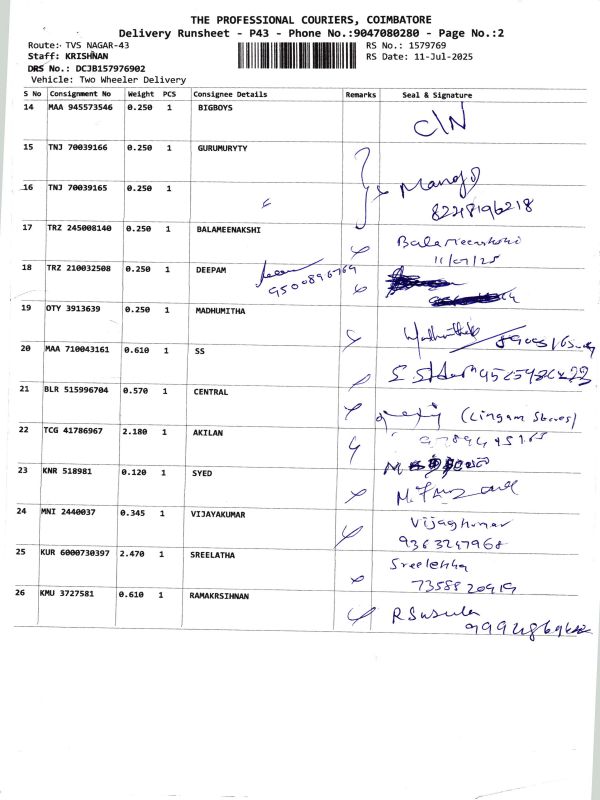 THE PROFESSIONAL COURIERS, COIMBATORE
Delivery Runsheet - P43 - Phone No.:9047080280 - Page No.:2
Route: TVS NAGAR-43 RS No.: 1579769
Staff: KRISHNAN RS Date: 11-Jul-2025
DRS No.: DCJB157976902
Vehicle: Two Wheeler Delivery
S No Consignment No Weight PCS Consignee Details Remarks Seal & Signature
14 MAA 945573546 0.250 1 BIGBOYS
C/N
15 TNJ 70039166 0.250 1 GURUMURYTY
16 TNJ 70039165 0.250 1
Manoj
8248196218
17 TRZ 245008140 0.250 1 BALAMEENAKSHI
Balameenakshi
11/07/25
18 TRZ 210032508 0.250 1 DEEPAM
9500896769
19 OTY 3913639 0.250 1 MADHUMITHA
20 MAA 710043161 0.610 1 SS
21 BLR 515996704 0.570 1 CENTRAL
(Lingam Stores)
22 TCG 41786967 2.180 1 AKILAN
23 KNR 518981 0.120 1 SYED
24 MNI 2440037 0.345 1 VIJAYAKUMAR
Vijayakumar
9363247968
25 KUR 6000730397 2.470 1 SREELATHA
Sreelekha
7358820919
26 KMU 3727581 0.610 1 RAMAKRSIHNAN
R Susula